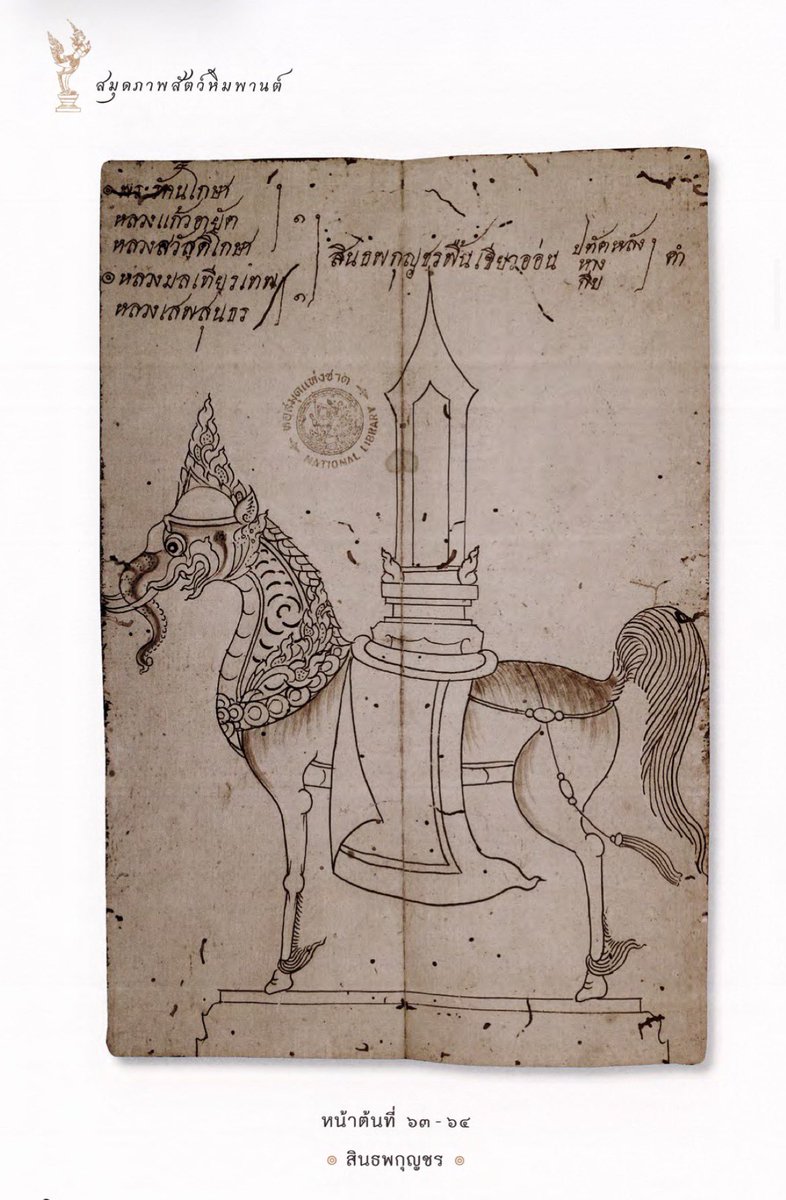 สมุดภาพสัตว์หิมพานต์
๏ พระรัตนโกษา
หลวงแก้วอายัต
หลวงสวัสดิโกษา
๑
๏ หลวงมลเทียรเทพ
หลวงเสพสุนธร
๑
สินธพกุญชรพื้นเขียวอ่อน
ปทัดหลัง
หาง
กีบ
ดำ
หอสมุดแห่งชาติ
NATIONAL LIBRARY
หน้าต้นที่ ๖๓ - ๖๔
๏ สินธพกุญชร ๏